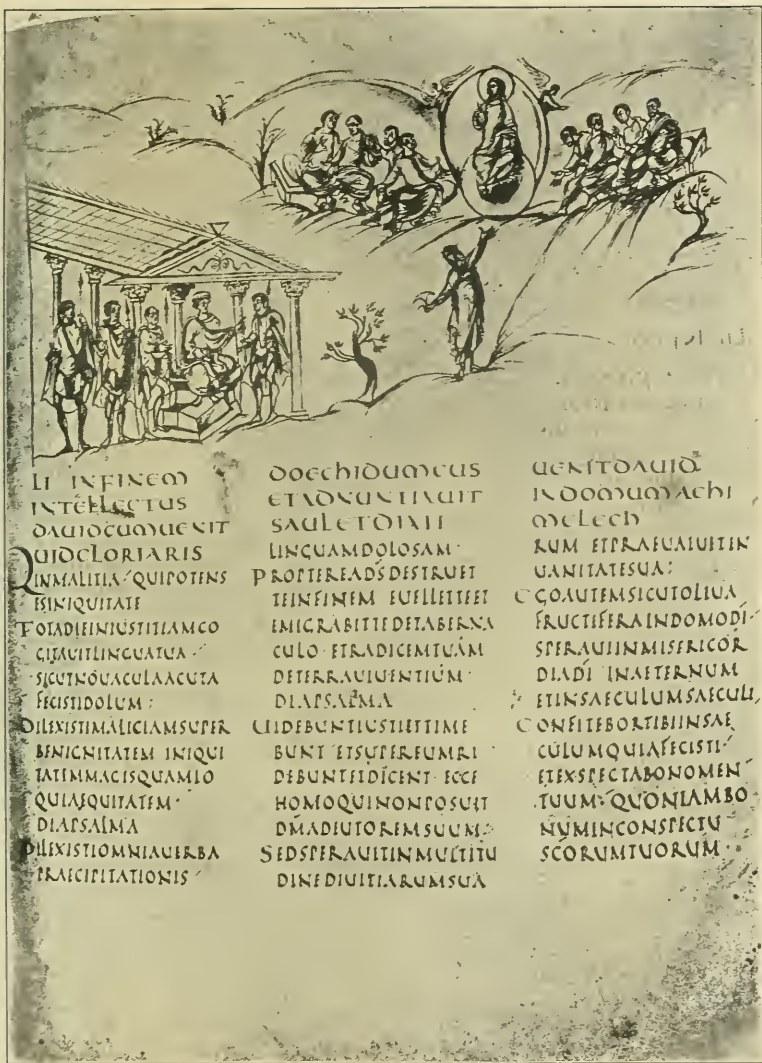 LI INFINEM
INTELLECTUS
DAUIDCUMUENIT
QUIDGLORIARIS
INMALITIA·QUIPOTENS
ESINIQUITATE
TOTADIEINIUSTITIAMCO
GITAUITLINGUATUA·
SICUTNOUACULAACUTA
FECISTIDOLUM:
DILEXISTIMALICIAMSUPER
BENIGNITATEM INIQUI
TATEMMAGISQUAMLO
QUIAEQUITATEM·
DIAPSALMA
DILEXISTIOMNIAUERBA
PRAECIPITATIONIS·
DOECHIDUMEUS
ETADNUNTIAUIT
SAULETDIXIT
LINGUAMDOLOSAM·
PROPTEREADSDESTRUET
TEINFINEM EUELLETTEET
EMIGRABITTEDETABERNA
CULO·ETRADICEMTUAM
DETERRAUIUENTIUM·
DIAPSALMA
UIDEBUNTIUSTIETTIME
BUNT ETSUPEREUMRI
DEBUNTETDICENT·ECCE
HOMOQUINONPOSUIT
DMADIUTOREMSUUM:
SEDSPERAUITINMULTITU
DINEDIUITIARUMSUA
UENITDAUID
INDOMUMACHI
MELECH
RUM ETPRAEUALUITIN
UANITATESUA:
EGOAUTEMSICUTOLIUA
FRUCTIFERAINDOMODI·
SPERAUIINMISERICOR
DIADI INAETERNUM
ETINSAECULUMSAECULI,
CONFITEBORTIBIINSAE
CULUMQUIAFECISTI·
ETEXSPECTABONOMEN
TUUM·QUONIAMBO
NUMINCONSPECTU
SCORUMTUORUM·